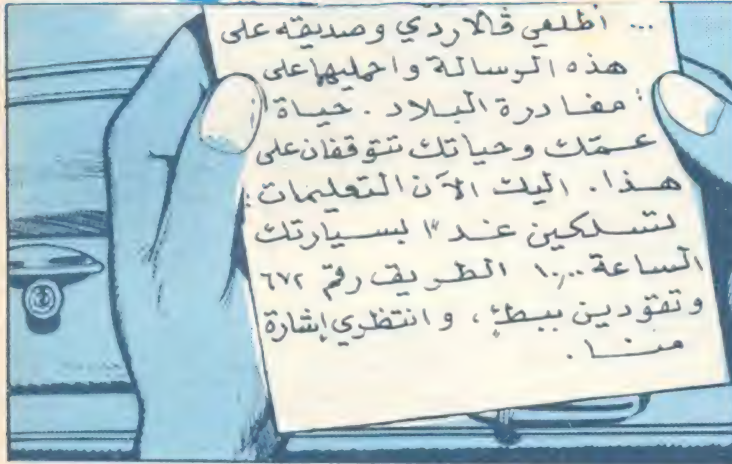 ... أطلعي ڤالاردي وصديقه على
هذه الرسالة واحمليها على
مغادرة البلاد. حياة
عمّك وحياتك تتوقفان على
هذا. اليك الآن التعليمات:
تسلكين غداً بسيارتك
الساعة ١٠,٠٠ الطريق رقم ٦٧٢
وتقودين ببطءٍ، وانتظري إشارة
منا.